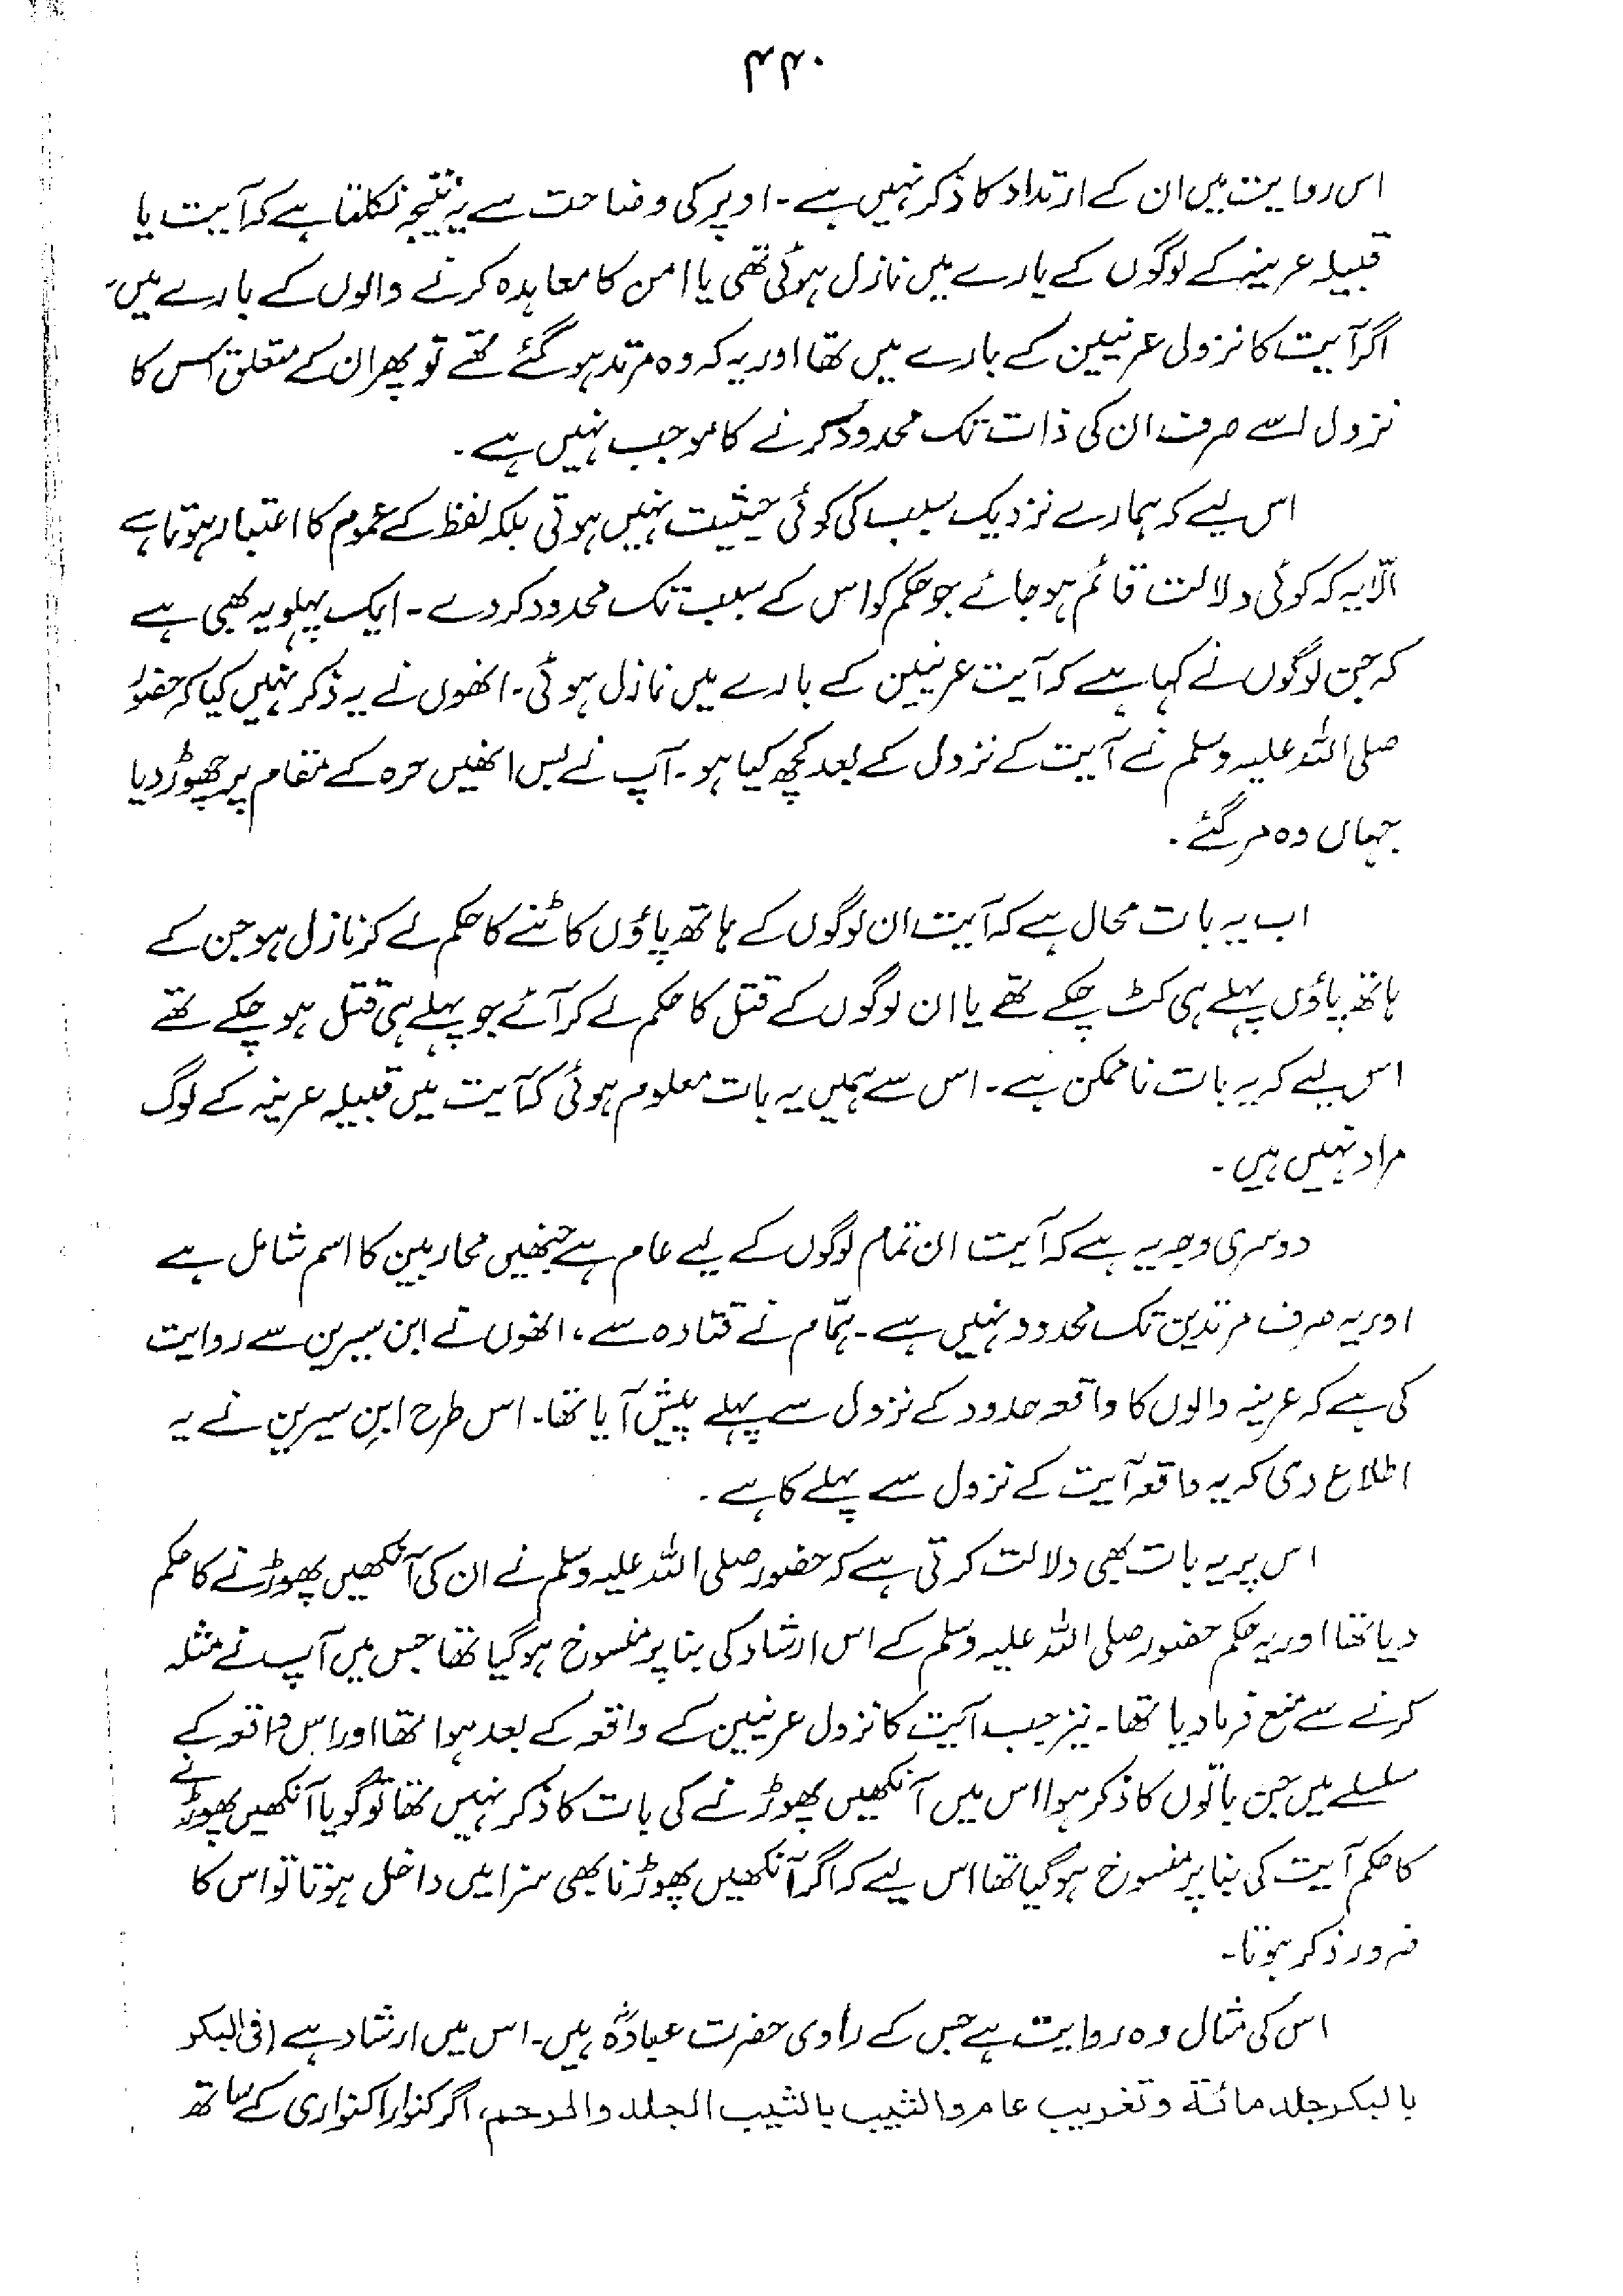 ۴۴۰
اس روایت میں ان کے ارتداد کا ذکر نہیں ہے۔ اوپر کی وضاحت سے یہ نتیجہ نکلتا ہے کہ آیت یا
قبیلہ عرینہ کے لوگوں کے بارے میں نازل ہوئی تھی یا امن کا معاہدہ کرنے والوں کے بارے میں،
اگر آیت کا نزول عرنیین کے بارے میں تھا اور یہ کہ وہ مرتد ہو گئے تھے تو پھر ان کے متعلق اس کا
نزول اسے صرف ان کی ذات تک محدود کرنے کا موجب نہیں ہے۔
اس لیے کہ ہمارے نزدیک سبب کی کوئی حیثیت نہیں ہوتی بلکہ لفظ کے عموم کا اعتبار ہوتا ہے
الّا یہ کہ کوئی دلالت قائم ہو جائے جو حکم کو اس کے سبب تک محدود کر دے۔ ایک پہلو یہ بھی ہے
کہ جن لوگوں نے کہا ہے کہ آیت عرنیین کے بارے میں نازل ہوئی۔ انھوں نے یہ ذکر نہیں کیا کہ حضور
صلی اللہ علیہ وسلم نے آیت کے نزول کے بعد کچھ کیا ہو۔ آپ نے بس انھیں حرہ کے مقام پر چھوڑ دیا
جہاں وہ مر گئے۔
اب یہ بات محال ہے کہ آیت ان لوگوں کے ہاتھ پاؤں کاٹنے کا حکم لے کر نازل ہو جن کے
ہاتھ پاؤں پہلے ہی کٹ چکے تھے یا ان لوگوں کے قتل کا حکم لے کر آئے جو پہلے ہی قتل ہو چکے تھے
اس لیے کہ یہ بات ناممکن ہے۔ اس سے ہمیں یہ بات معلوم ہوئی کہ آیت میں قبیلہ عرینہ کے لوگ
مراد نہیں ہیں۔
دوسری وجہ یہ ہے کہ آیت ان تمام لوگوں کے لیے عام ہے جنھیں محاربین کا اسم شامل ہے
اور یہ صرف مرتدین تک محدود نہیں ہے۔ ہمّام نے قتادہ سے، انھوں نے ابن سیرین سے روایت
کی ہے کہ عرینہ والوں کا واقعہ حدود کے نزول سے پہلے پیش آیا تھا۔ اس طرح ابن سیرین نے یہ
اطلاع دی کہ یہ واقعہ آیت کے نزول سے پہلے کا ہے۔
اس پر یہ بات بھی دلالت کرتی ہے کہ حضور صلی اللہ علیہ وسلم نے ان کی آنکھیں پھوڑنے کا حکم
دیا تھا اور یہ حکم حضور صلی اللہ علیہ وسلم کے اس ارشاد کی بنا پر منسوخ ہو گیا تھا جس میں آپ نے مثلہ
کرنے سے منع فرما دیا تھا۔ نیز جب آیت کا نزول عرنیین کے واقعہ کے بعد ہوا تھا اور اس واقعہ کے
سلسلے میں جن باتوں کا ذکر ہوا اس میں آنکھیں پھوڑنے کی بات کا ذکر نہیں تھا تو گویا آنکھیں پھوڑنے
کا حکم آیت کی بنا پر منسوخ ہو گیا تھا اس لیے کہ اگر آنکھیں پھوڑنا بھی سزا میں داخل ہوتا تو اس کا
ضرور ذکر ہوتا۔
اس کی مثال وہ روایت ہے جس کے راوی حضرت عبادہؓ ہیں۔ اس میں ارشاد ہے (فی البکر
بالبکر جلد مائة و تغریب عام والثیب بالثیب الجلد والرجم، اگر کنوارا کنواری کے ساتھ